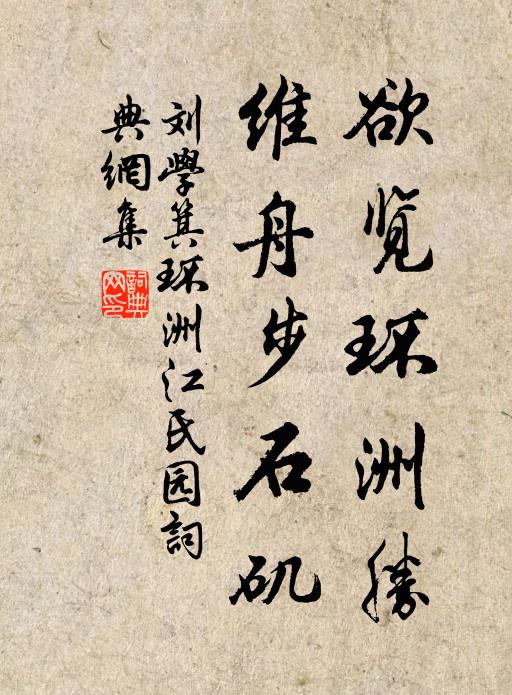 欲览环洲勝
维舟步石矶
刘學箕环洲江氏园詞
典網集
詞典網印